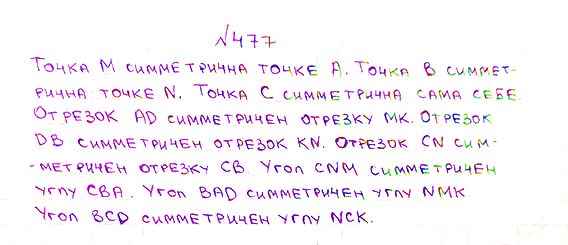 №477
Точка М симметрична точке А. Точка В симмет-
рична точке N. Точка С симметрична сама себе.
Отрезок AD симметричен отрезку МК. Отрезок
DB симметричен отрезок KN. Отрезок CN сим-
-метричен отрезку СВ. Угол CNM симметричен
углу СВА. Угол BAD симметричен углу NMK.
Угол BCD симметричен углу NCK.